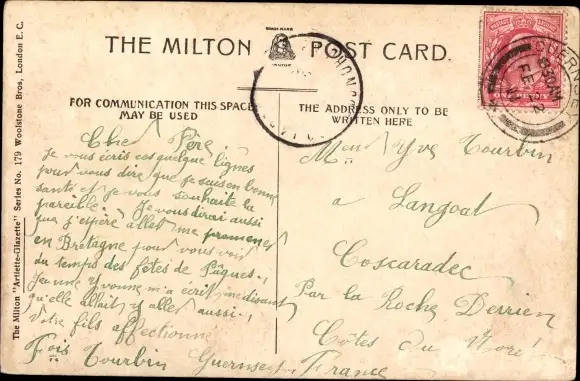 THE MILTON POST CARD.
FOR COMMUNICATION THIS SPACE
MAY BE USED
THE ADDRESS ONLY TO BE
WRITTEN HERE
The Milton "Artlette-Glazette" Series No. 179 Woolstone Bros, London E.C.
GUERNSEY
Cher Père
Je vous écris ces quelque lignes
pour vous dire que je suis en bonne
santé et je vous souhaite la
pareille. Je vous dirai aussi
que j'espère aller me promener
en Bretagne pour vous voir
du temps des fêtes de Pâques.,
Jeanne Yvonne m'a écrit me disant
qu'elle allait y aller aussi.,
Votre fils affectionne
Fois Tourbin Guernsey
Yve Tourbin
a Langoat
Coscaradec
Par la Roche Derrien
Côtes du Nord
France